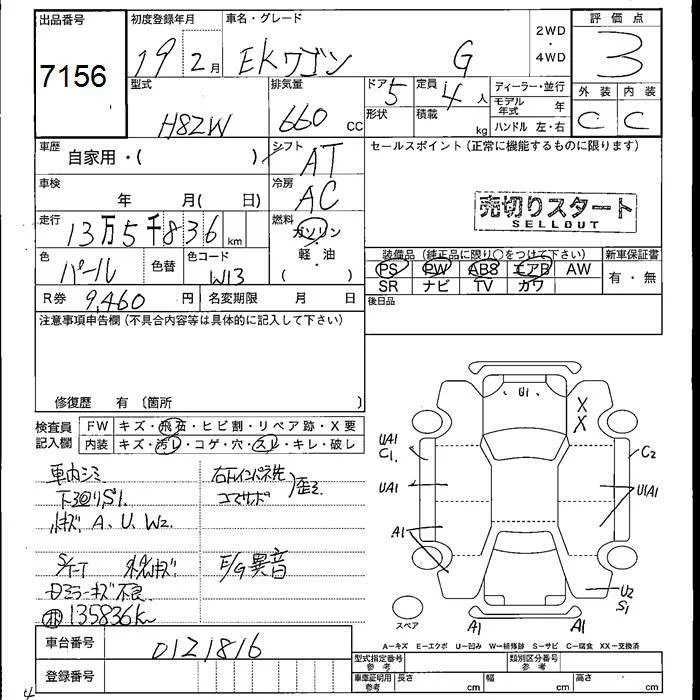 出品番号 初度登録年月 車名・グレード 評価点
7156 19年 2月 EKワゴン G 2WD・4WD 3
型式 排気量 ドア 5 定員 4人 ディーラー・並行 外装 内装
H82W 660cc 形状 積載 kg モデル年式 年 C C
ハンドル 左・右
車歴 自家用・( ) シフト AT セールスポイント(正常に機能するものに限ります)
車検 年 月( 日) 冷房 AC
売切りスタート
SELLOUT
走行 13万5千836km 燃料 ガソリン・軽・油
装備品(純正品に限り○をつけて下さい) 新車保証書
色 パール 色替 色コード W13 PS PW ABS エアB AW 有・無
SR ナビ TV カワ
R券 9,460円 名変期限 月 日 後日品
注意事項申告欄(不具合内容等は具体的に記入して下さい)
修復歴 有 (箇所 )
検査員記入欄 FW キズ・飛石・ヒビ割・リペア跡・X要
内装 キズ・汚レ・コゲ・穴・スレ・キレ・破レ
車内シミ
下回りS1
小キズ A、U、W2
ドアミラーキズ不良
135836km
E/G異音
U1
X
X
UA1
C1
UA1
A1
C2
U1A1
U2
S1
A1 A1
スペア
A-キズ E-エクボ U-凹み W-補修跡 S-サビ C-腐食 XX-交換済
車台番号 0121816
登録番号
型式指定番号 参考 類別区分番号 参考
車庫証明用 参考 長さ cm 幅 cm 高さ cm
4